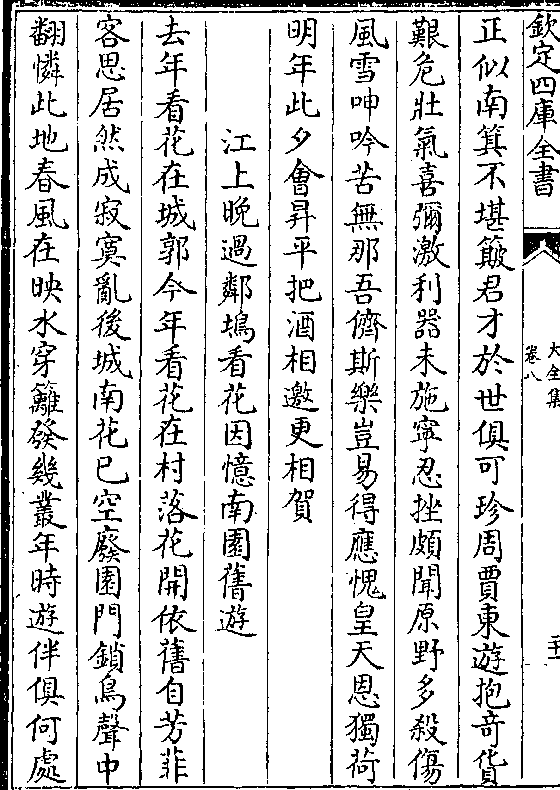 欽定四庫全書
大全集
卷八
正似南箕不堪簸君才於世俱可珍周賈東遊抱竒貨
艱危壯氣喜彌激利器未施寧忍挫頗聞原野多殺傷
風雪呻吟苦無那吾儕斯樂豈易得應愧皇天恩獨荷
明年此夕會昇平把酒相邀更相賀
江上晚過鄰塢看花因憶南園舊遊
去年看花在城郭今年看花在村落花開依舊自芳菲
客思居然成寂寞亂後城南花已空廢園門鎖鳥聲中
翻憐此地春風在映水穿籬發幾叢年時遊伴俱何處